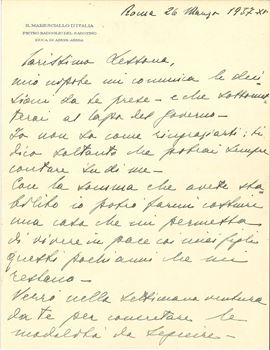 Roma 26 Marzo 1937-XV
IL MARESCIALLO D'ITALIA
PIETRO BADOGLIO DEL SABOTINO
DUCA DI ADDIS ABEBA
Carissimo Lessona,
mio nipote mi comunica le deci-
sioni da te prese - e che sottomet-
terai al Capo del governo -
Io non so come ringraziarti; ti
dico soltanto che potrai sempre
contare su di me -
Con la somma che avete sta-
bilito io potrò farmi costruire
una casa che mi permetta
di vivere in pace coi miei figli
questi pochi anni che mi
restano -
Verrò nella settimana ventura
da te per concretare le
modalità da seguire -